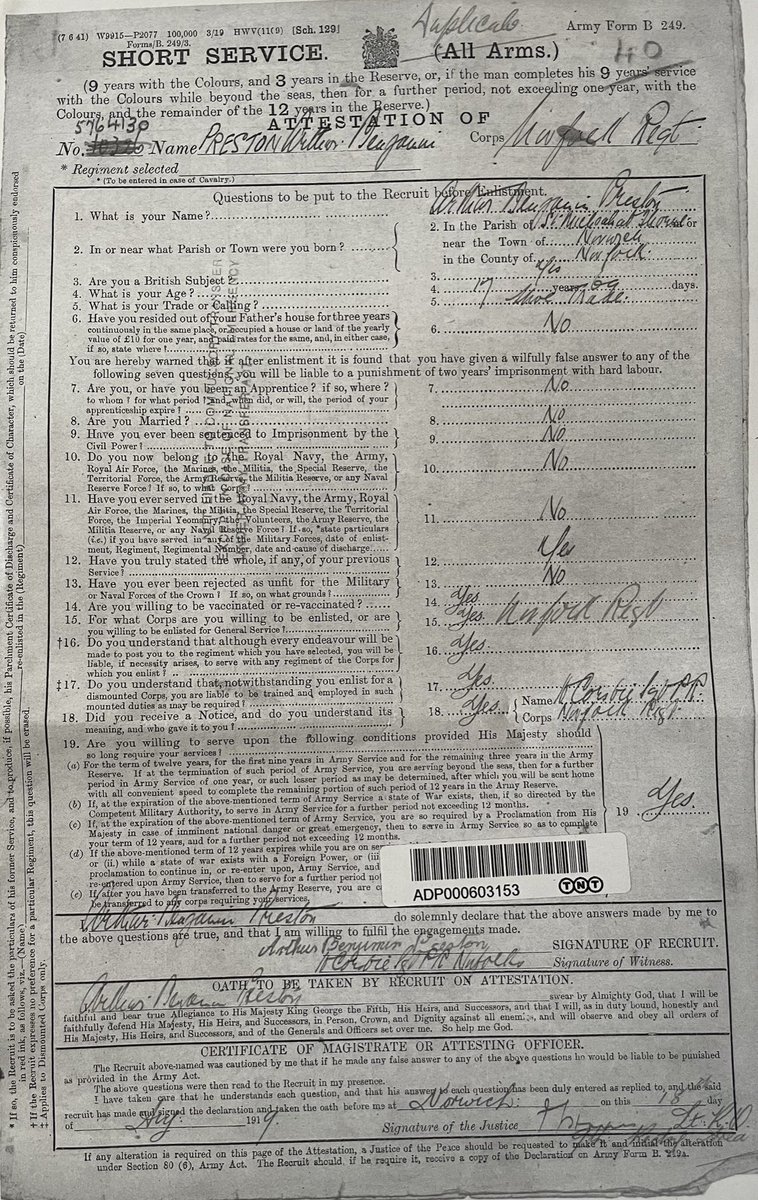 (7 6 41) W9915—P2077 100,000 3/19 HWV(1109) [Sch. 129]
Forms/B. 249/3.
Duplicate
Army Form B 249.
SHORT SERVICE.
(All Arms.)
40
(9 years with the Colours, and 3 years in the Reserve, or, if the man completes his 9 years' service
with the Colours while beyond the seas, then for a further period, not exceeding one year, with the
Colours, and the remainder of the 12 years in the Reserve.)
ATTESTATION OF
5764130
No. Name PRESTON Arthur Benjamin Corps Norfolk Regt
* Regiment selected
* (To be entered in case of Cavalry.)
Questions to be put to the Recruit before Enlistment.
1. What is your Name?
Arthur Benjamin Preston
2. In or near what Parish or Town were you born?
2. In the Parish of St. Michael at Thorn or
near the Town of Norwich
in the County of Norfolk.
3. Are you a British Subject?
3. Yes
4. What is your Age?
4. 17 years 69 days.
5. What is your Trade or Calling?
5. Shoe Trade.
6. Have you resided out of your Father's house for three years
continuously in the same place, or occupied a house or land of the yearly
value of £10 for one year, and paid rates for the same, and, in either case,
if so, state where?
6. No
You are hereby warned that if after enlistment it is found that you have given a wilfully false answer to any of the
following seven questions, you will be liable to a punishment of two years' imprisonment with hard labour.
7. Are you, or have you been, an Apprentice? if so, where?
to whom? for what period? and, when did, or will, the period of your
apprenticeship expire?
7. No
8. Are you Married?
8. No
9. Have you ever been sentenced to Imprisonment by the
Civil Power?
9. No
10. Do you now belong to the Royal Navy, the Army,
Royal Air Force, the Marines, the Militia, the Special Reserve, the
Territorial Force, the Army Reserve, the Militia Reserve, or any Naval
Reserve Force? If so, to what Corps?
10. No
11. Have you ever served in the Royal Navy, the Army, Royal
Air Force, the Marines, the Militia, the Special Reserve, the Territorial
Force, the Imperial Yeomanry, the Volunteers, the Army Reserve, the
Militia Reserve, or any Naval Reserve Force? If so, *state particulars
(i.e.) if you have served in any of the Military Forces, date of enlist-
ment, Regiment, Regimental Number, date and cause of discharge
11. No
12. Have you truly stated the whole, if any, of your previous
Service?
12. Yes
13. Have you ever been rejected as unfit for the Military
or Naval Forces of the Crown? If so, on what grounds?
13. No
14. Are you willing to be vaccinated or re-vaccinated?
14. Yes
15. For what Corps are you willing to be enlisted, or are
you willing to be enlisted for General Service?
15. Yes Norfolk Regt
†16. Do you understand that although every endeavour will be
made to post you to the regiment which you have selected, you will be
liable, if necessity arises, to serve with any regiment of the Corps for
which you enlist?
16. Yes.
‡17. Do you understand that, notwithstanding you enlist for a
dismounted Corps, you are liable to be trained and employed in such
mounted duties as may be required?
17. Yes.
18. Did you receive a Notice, and do you understand its
meaning, and who gave it to you?
18. Yes. Name Corbie Sgt
Corps Norfolk Regt
19. Are you willing to serve upon the following conditions provided His Majesty should
so long require your services?
(a) For the term of twelve years, for the first nine years in Army Service and for the remaining three years in the Army
Reserve. If at the termination of such period of Army Service, you are serving beyond the seas, then for a further
period in Army Service of one year, or such lesser period as may be determined, after which you will be sent home
with all convenient speed to complete the remaining portion of such period of 12 years in the Army Reserve.
(b) If, at the expiration of the above-mentioned term of Army Service a state of War exists, then, if so directed by the
Competent Military Authority, to serve in Army Service for a further period not exceeding 12 months.
(c) If, at the expiration of the above-mentioned term of Army Service, you are so required by a Proclamation from His
Majesty in case of imminent national danger or great emergency, then to serve in Army Service so as to complete
your term of 12 years, and for a further period not exceeding 12 months.
(d) If the above-mentioned term of 12 years expires while you are on
or (ii.) while a state of war exists with a Foreign Power, or (iii
proclamation to continue in, or re-enter upon, Army Service, and
re-entered upon Army Service, then to serve for a further period not
(e) If after you have been transferred to the Army Reserve, you are
be transferred to any corps requiring your services.
19 Yes.
ADP000603153
TNT
Arthur Benjamin Preston do solemnly declare that the above answers made by me to
the above questions are true, and that I am willing to fulfil the engagements made.
Arthur Benjamin Preston SIGNATURE OF RECRUIT.
Corbie Sgt Norfolks Signature of Witness.
OATH TO BE TAKEN BY RECRUIT ON ATTESTATION.
Arthur Benjamin Preston swear by Almighty God, that I will be
faithful and bear true Allegiance to His Majesty King George the Fifth, His Heirs, and Successors, and that I will, as in duty bound, honestly and
faithfully defend His Majesty, His Heirs, and Successors, in Person, Crown, and Dignity against all enemies, and will observe and obey all orders of
His Majesty, His Heirs, and Successors, and of the Generals and Officers set over me. So help me God.
CERTIFICATE OF MAGISTRATE OR ATTESTING OFFICER.
The Recruit above-named was cautioned by me that if he made any false answer to any of the above questions he would be liable to be punished
as provided in the Army Act.
The above questions were then read to the Recruit in my presence.
I have taken care that he understands each question, and that his answer to each question has been duly entered as replied to, and the said
recruit has made and signed the declaration and taken the oath before me at Norwich on this 18th day
of Aug 1919. Signature of the Justice
If any alteration is required on this page of the Attestation, a Justice of the Peace should be requested to make it and initial the alteration
under Section 80 (6), Army Act. The Recruit should, if he require it, receive a copy of the Declaration on Army Form B. 249A.
* If so, the Recruit is to be asked the particulars of his former Service, and to produce, if possible, his Parchment Certificate of Discharge and Certificate of Character, which should be returned to him conspicuously endorsed
in red ink, as follows, viz.—(Name) re-enlisted in the (Regiment) on the (Date)
† If the Recruit expresses no preference for a particular Regiment, this question will be erased.
‡ Applies to Dismounted Corps only.